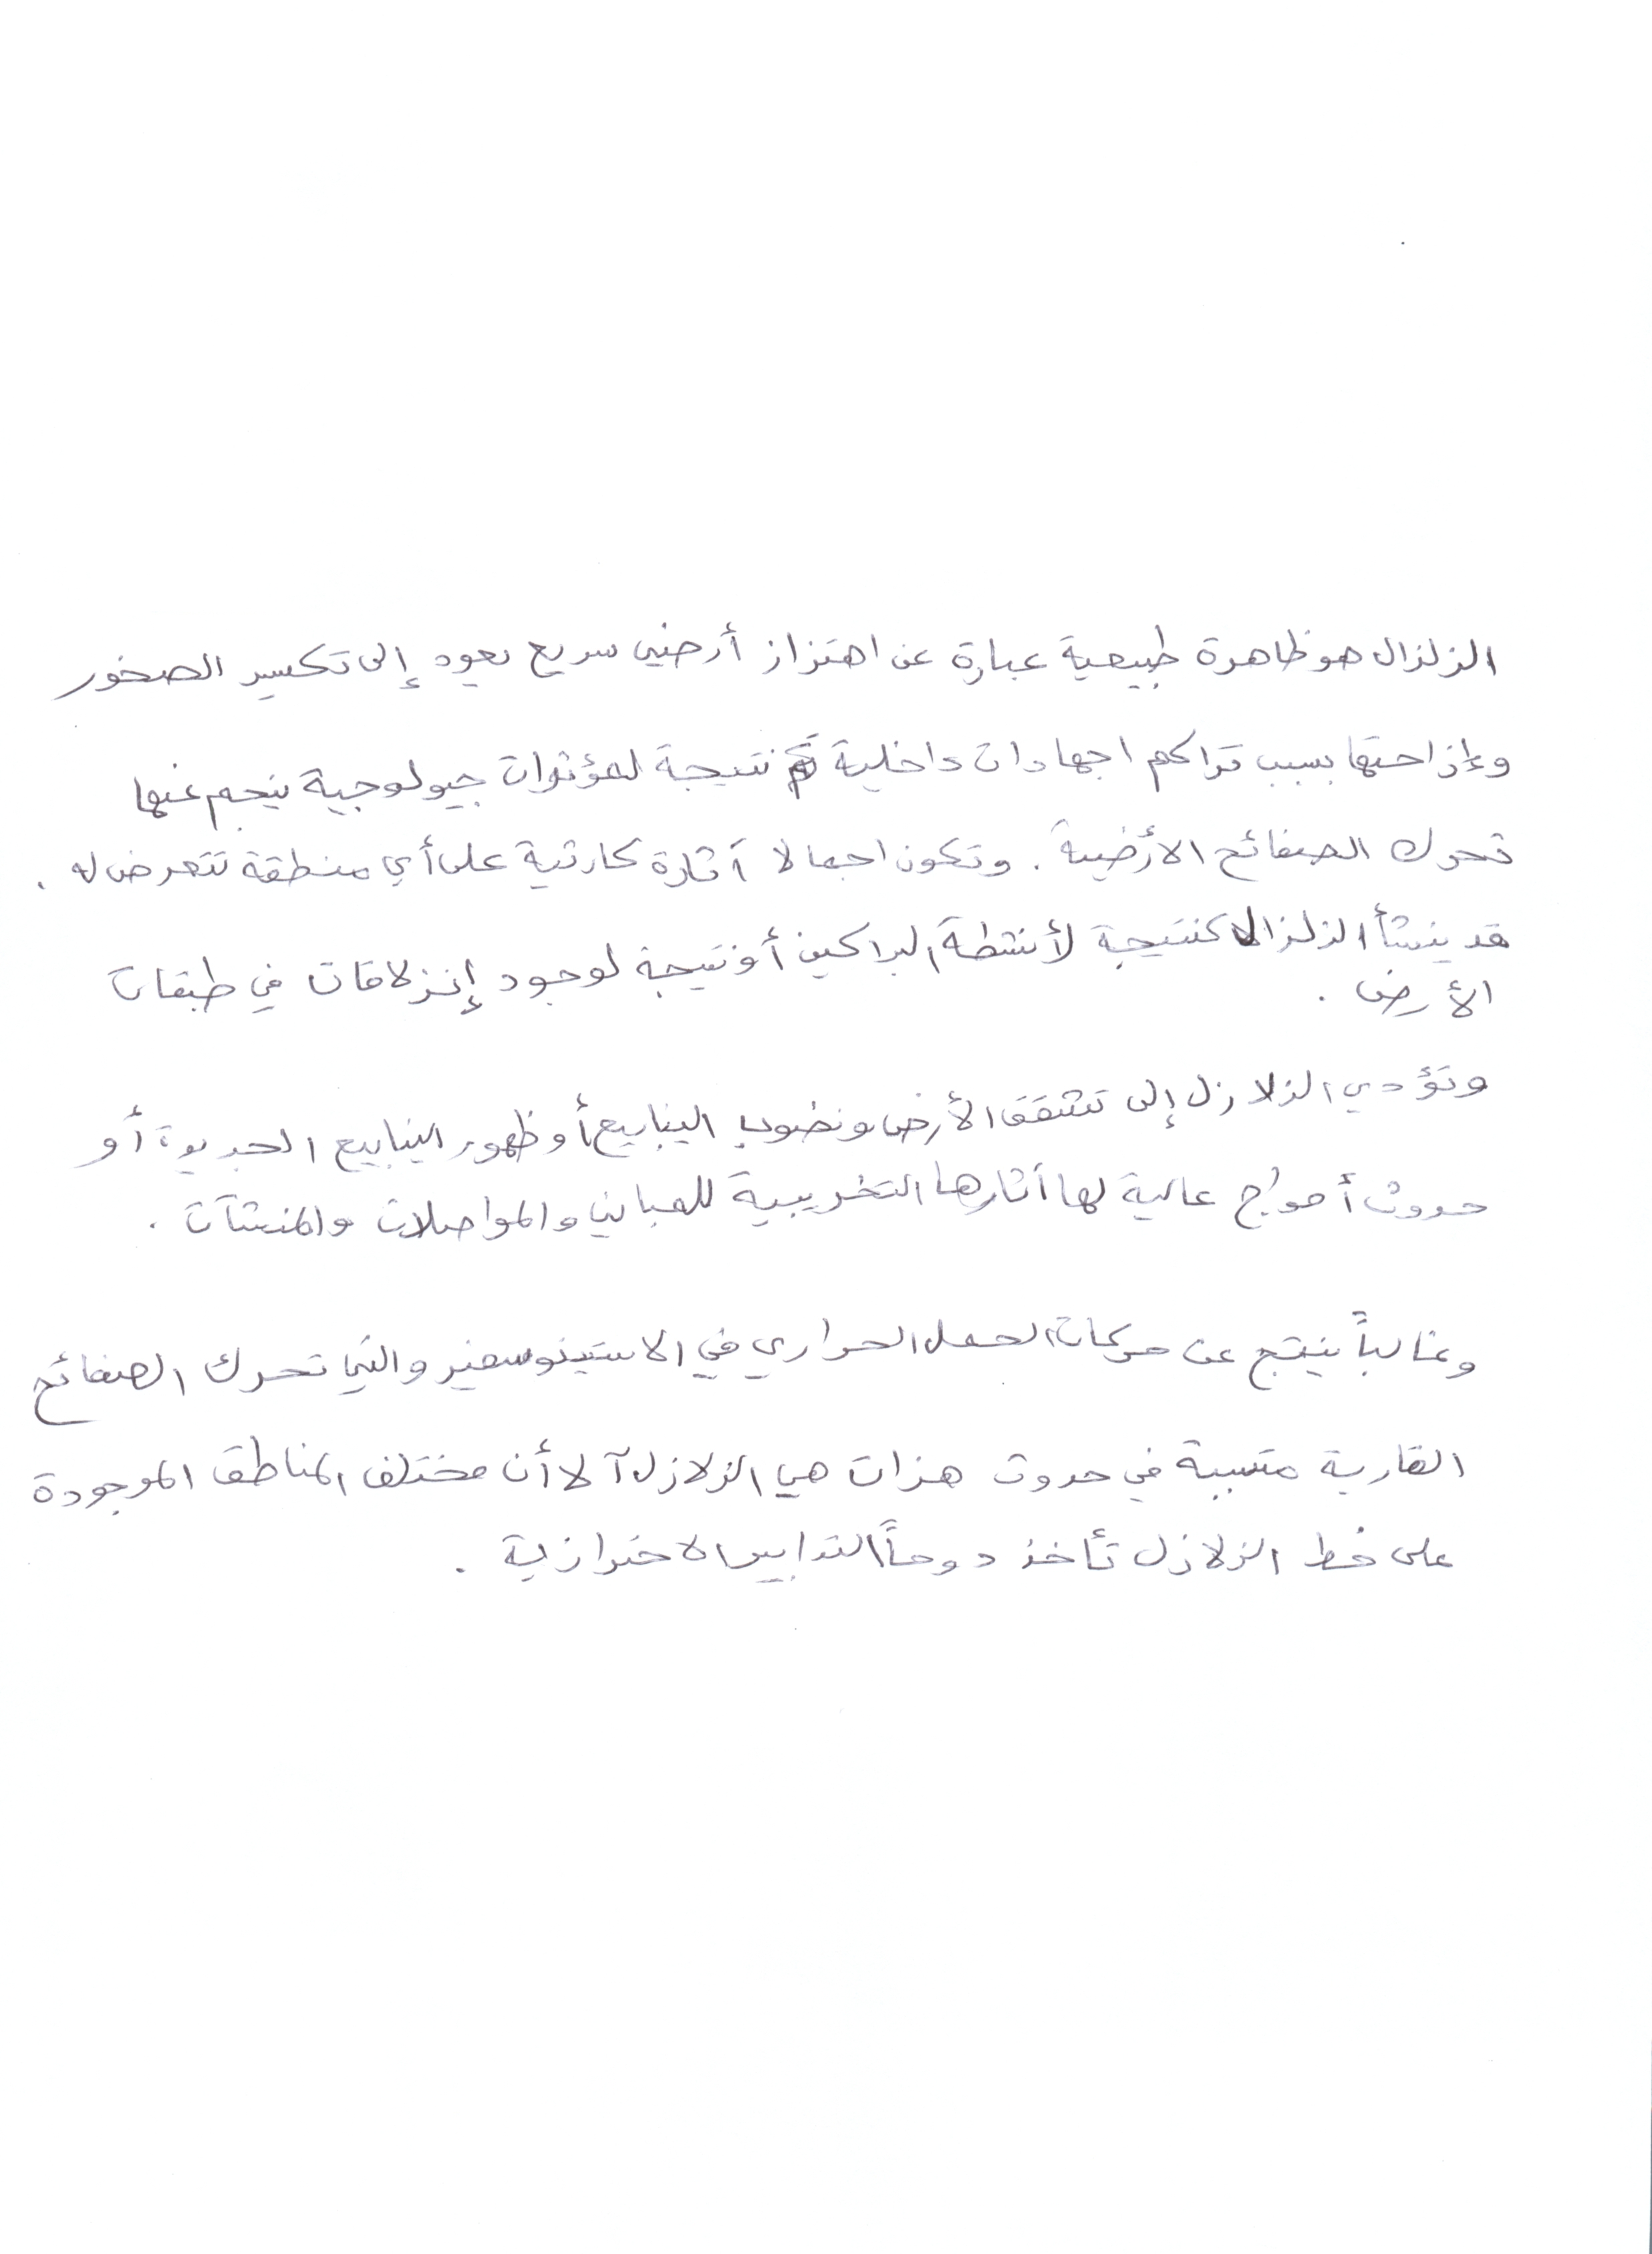 الزلزال هو ظاهرة طبيعية عبارة عن اهتزاز أرضي سريع يعود إلى تكسير الصخور
وإزاحتها بسبب تراكم اجهادات داخلية نتيجة لمؤثرات جيولوجية ينجم عنها
تحرك الصفائح الأرضية . وتكون اجمالا آثارة كارثية على أي منطقة تتعرض له .
قد ينشأ الزلزال كنتيجة لأنشطة البراكين أو نتيجة لوجود إنزلاقات في طبقات
الأرض .
وتؤدي الزلازل إلى تشقق الأرض ونضوب الينابيع أو ظهور الينابيع الجديدة أو
حدوث أمواج عالية لها آثارها التخريبية للمباني والمواصلات والمنشآت .
وغالباً ينتج عن حركات الحمل الحراري في الاستينوسفير والتي تحرك الصفائح
القارية متسببة في حدوث هزات هي الزلازل آلا أن مختلف المناطق الموجودة
على خط الزلازل تأخذ دوماً التدابير الاحترازية .